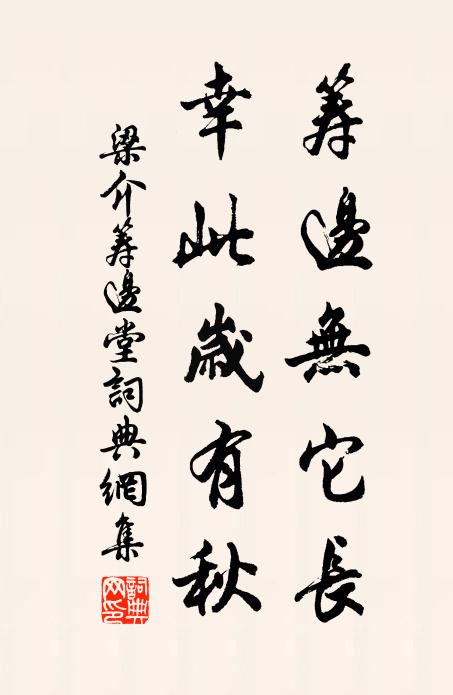 籌邊無它長
幸此歲有秋
梁介籌邊堂詞典網集
詞典网印